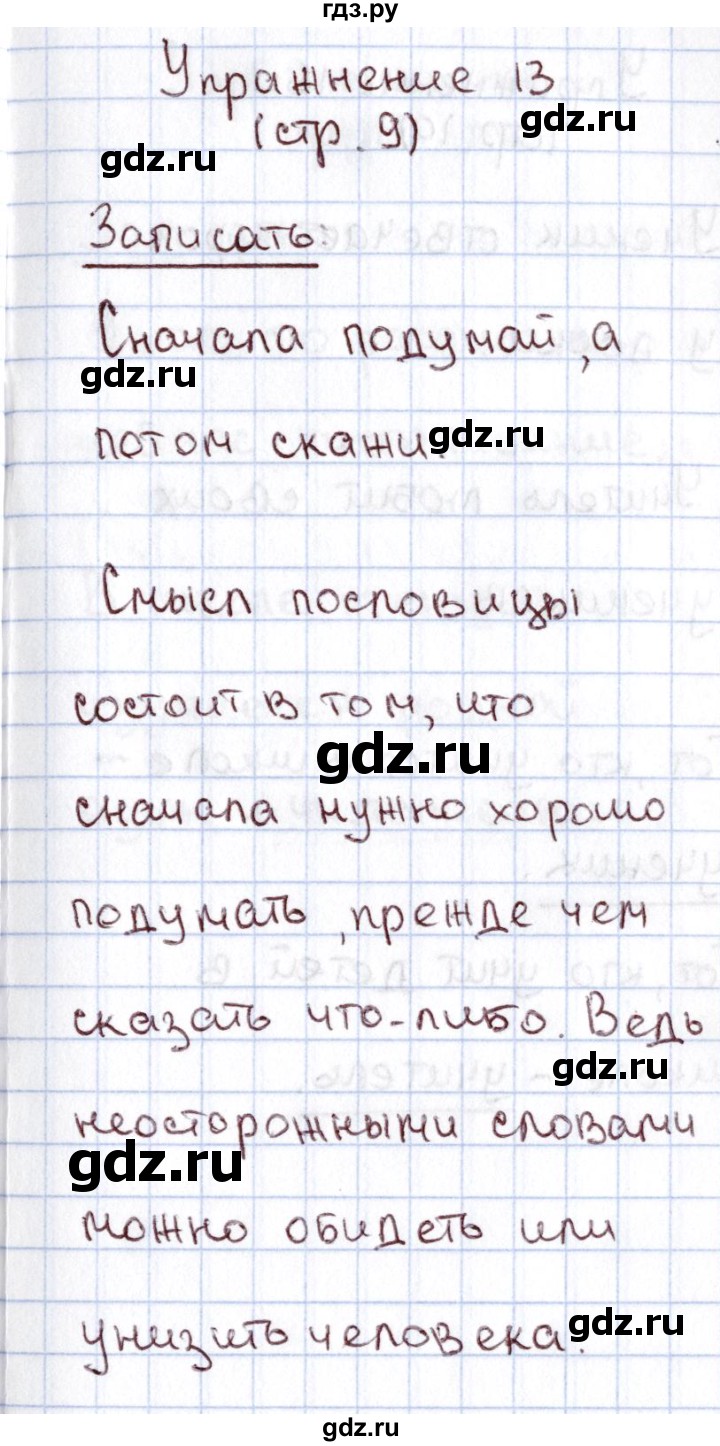 гдз.ру
Упражнение 13
gdz.ru
(стр. 9)
gdz.ru
Записать:
Сначала подумай, а
gdz.ru
потом скажи.
gdz.ru
Смысл пословицы
состоит в том, что
gdz.ru
сначала нужно хорошо
подумать, прежде чем
сказать что-либо. Ведь
gdz.ru
неосторожными словами
gdz.ru
можно обидеть или
унизить человека.
gdz.ru
gdz.ru